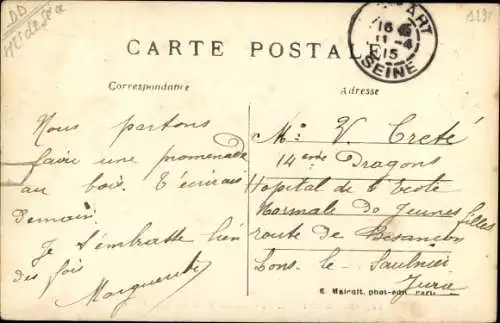 DD
Hte de sce
CARTE POSTALE
ART
16
11-4
15
SEINE
Correspondance
Adresse
Nous partons
faire une promenade
au bois. T'écrirai
demain.
Je t'embrasse bien
des fois
Marguerite
Mr V. Creté
14eme Dragons
Hopital de l'Ecole
Normale de Jeunes filles
route de Besançon
Lons-le-Saulnier
Jura
phot-edit. Paris